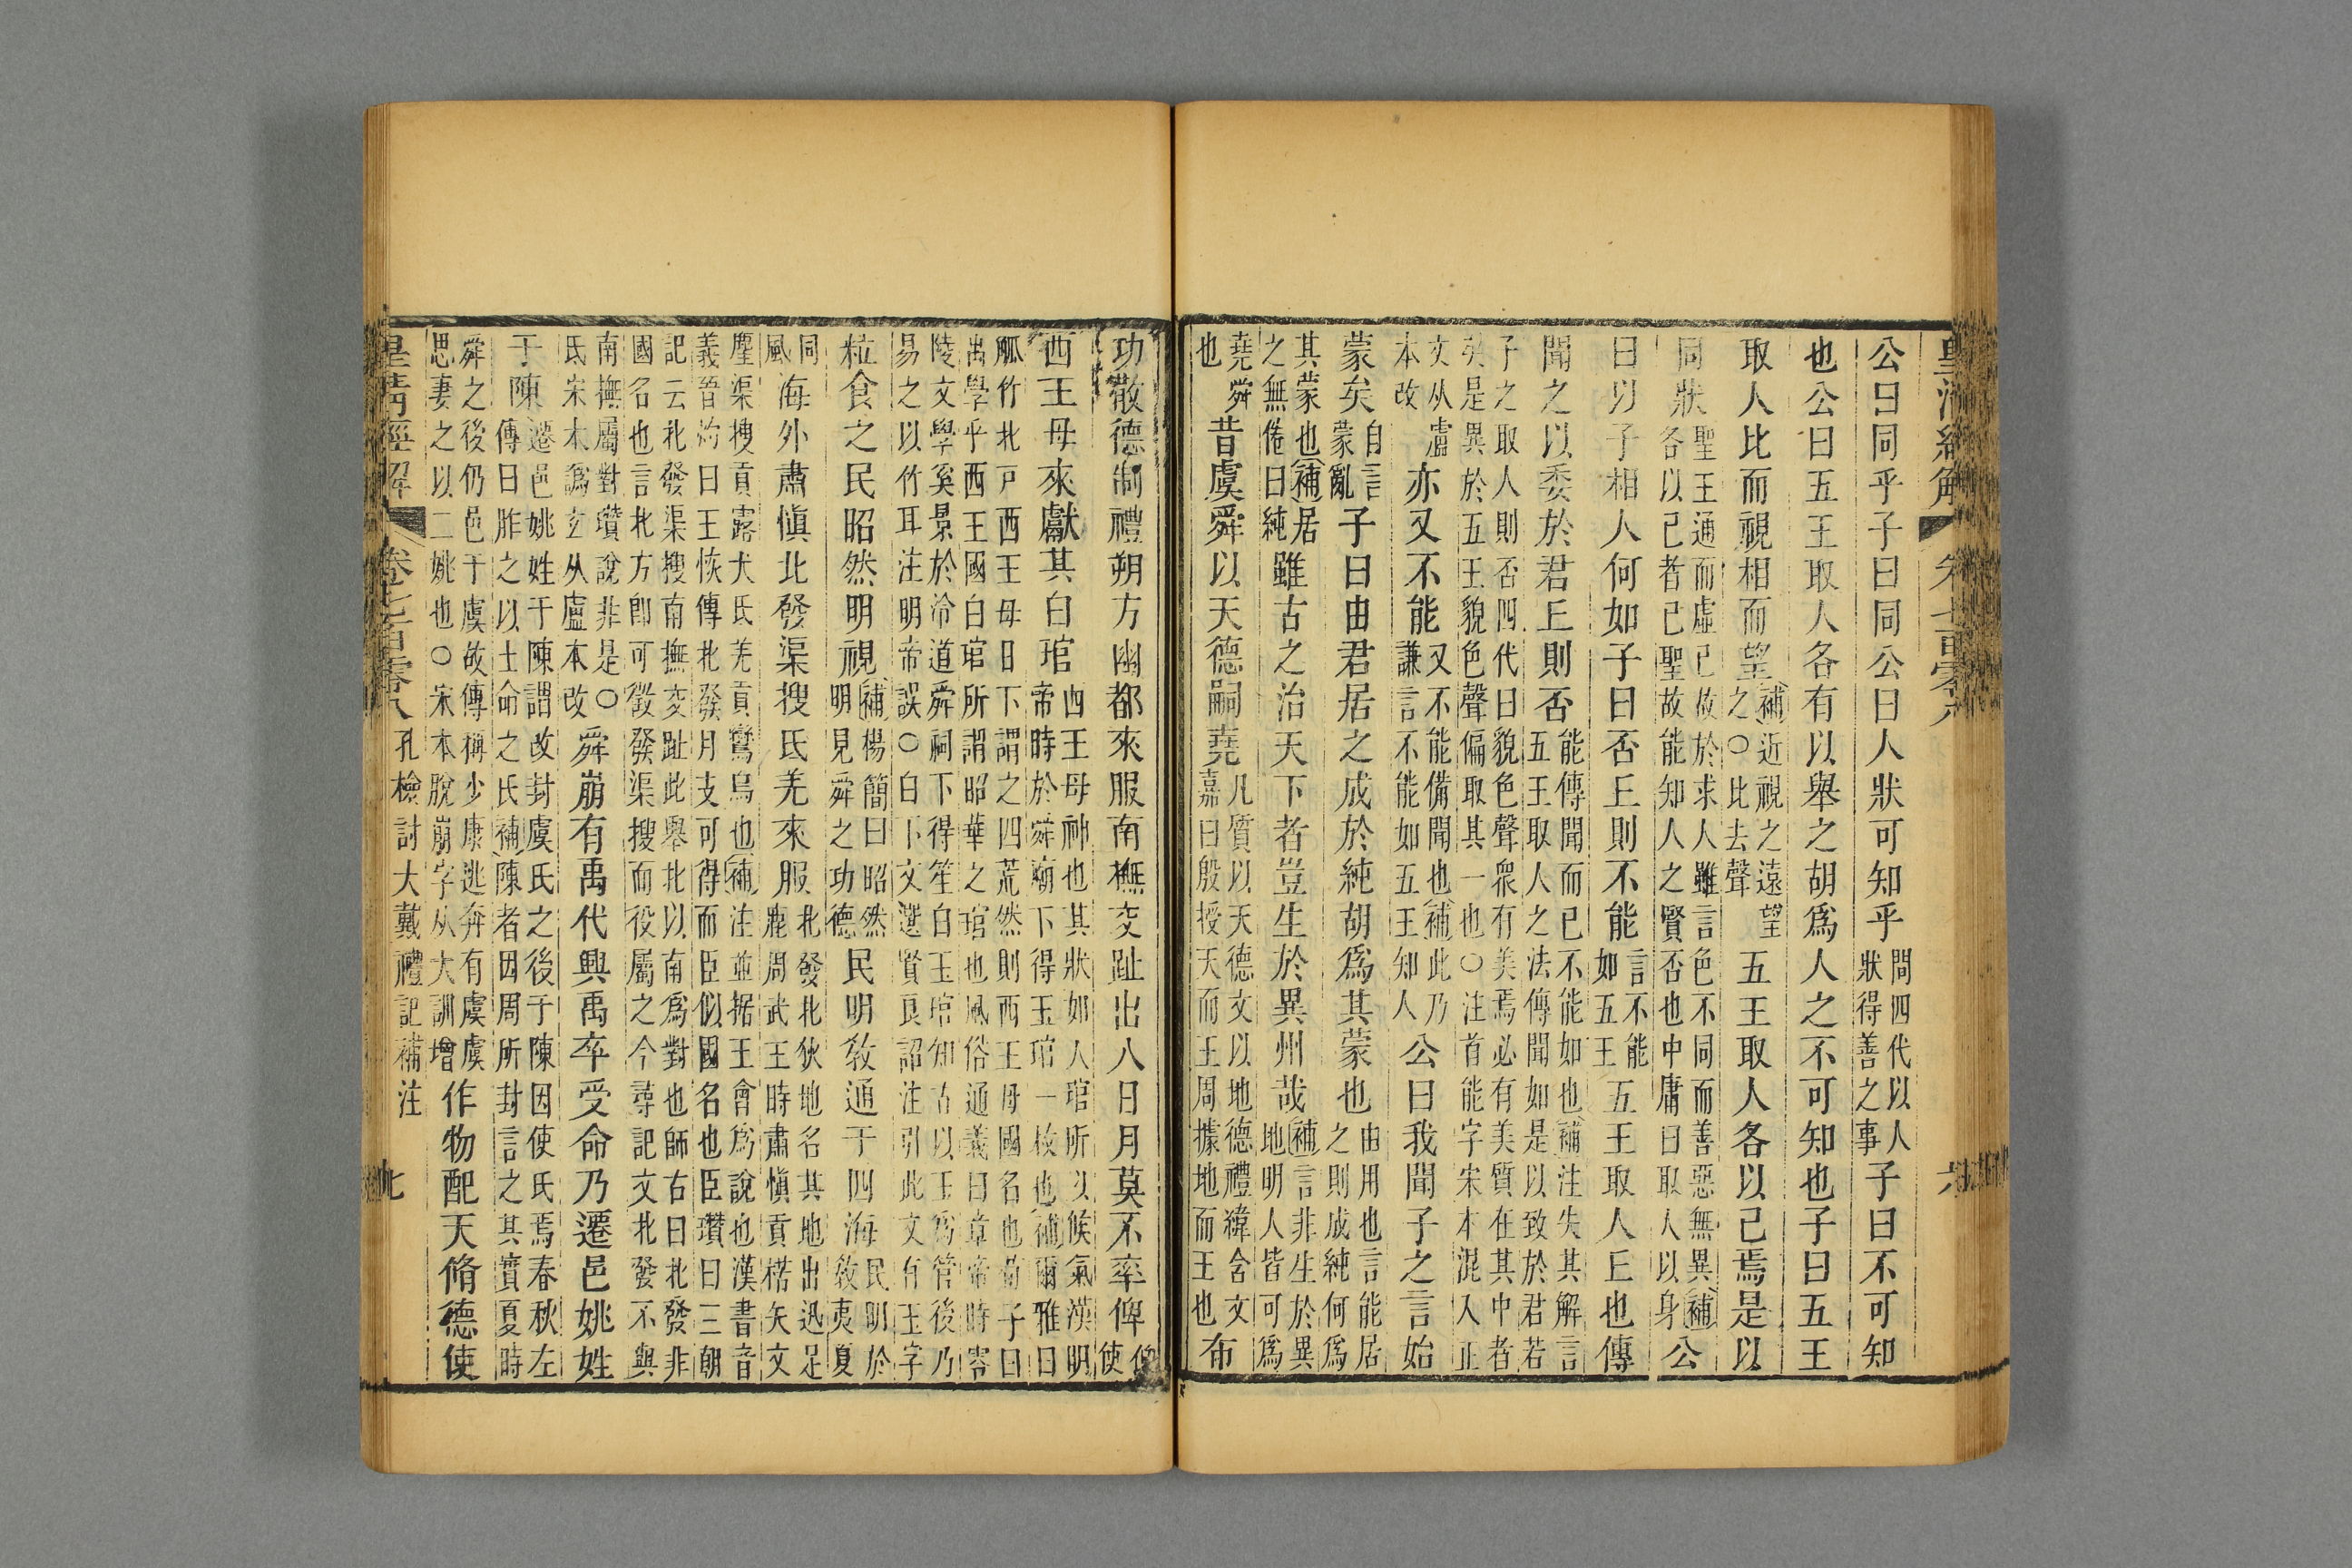 皇清經解 卷七百零八 六
公曰同乎子曰同公曰人狀可知乎問四代以人狀得善之事子曰不可知
也公曰五王取人各有以舉之胡爲人之不可知也子曰五王
取人比而視相而望補近視之遠望之○比去聲五王取人各以己焉是以
同狀聖王通而虛己故於求人雖言色不同而善惡無異補各以己者己聖故能知人之賢否也中庸曰取人以身公
曰以子相人何如子曰否丘則不能言不能如五王五王取人丘也傳
聞之以委於君丘則否能傳聞而已不能如也補注失其解言五王取人之法傳聞如是以致於君若
子之取人則否四代曰貌色聲衆有美焉必有美質在其中者矣是異於五王貌色聲偏取其一也○注首能字宋本混入正
文从盧本改亦又不能又不能備聞也補此乃謙言不能如五王知人公曰我聞子之言始
蒙矣自言蒙亂子曰由君居之成於純胡爲其蒙也由用也言能居之則成純何爲
其蒙也補居之無倦曰純雖古之治天下者豈生於異州哉補言非生於異地明人皆可爲
堯舜也昔虞舜以天德嗣堯凡質以天德文以地德禮緯含文嘉曰殷授天而王周據地而王也布
功散德制禮朔方幽都來服南撫交趾出入日月莫不率俾俾使
西王母來獻其白琯西王母神也其狀如人琯所以候氣漢明帝時於舜廟下得玉琯一枚也補爾雅曰
觚竹北戸西王母日下謂之四荒然則西王母國名也荀子曰禹學乎西王國白琯所謂昭華之琯也風俗通義曰章帝時零
陵文學奚景於泠道舜祠下得笙白玉琯知古以玉爲管後乃易之以竹耳注明帝誤○白下文選賢良詔注引此文有玉字
粒食之民昭然明視補楊簡曰昭然明見舜之功德民明敎通于四海民明於敎夷夏
同風海外肅愼北發渠搜氐羌來服北發北狄地名其地出迅足鹿周武王時肅愼貢楛矢文
塵渠搜貢露犬氐羌貢鸞鳥也補注並据王會爲說也漢書音義晉灼曰王恢傳北發月支可得而臣似國名也臣瓚曰三朝
記云北發渠搜南撫交趾此舉北以南爲對也師古曰北發非國名也言北方即可徵發渠搜而役屬之今尋記文北發不與
南撫屬對瓚說非是○氐宋本譌玄从盧本改舜崩有禹代興禹卒受命乃遷邑姚姓
于陳遷邑姚姓于陳謂改封虞氏之後于陳因使氏焉春秋左傳曰胙之以土命之氏補陳者因周所封言之其實夏時
舜之後仍邑于虞故傳稱少康逃奔有虞虞思妻之以二姚也○宋本脫崩字从大訓增作物配天脩德使
皇清經解 卷七百零八 孔檢討大戴禮記補注 七